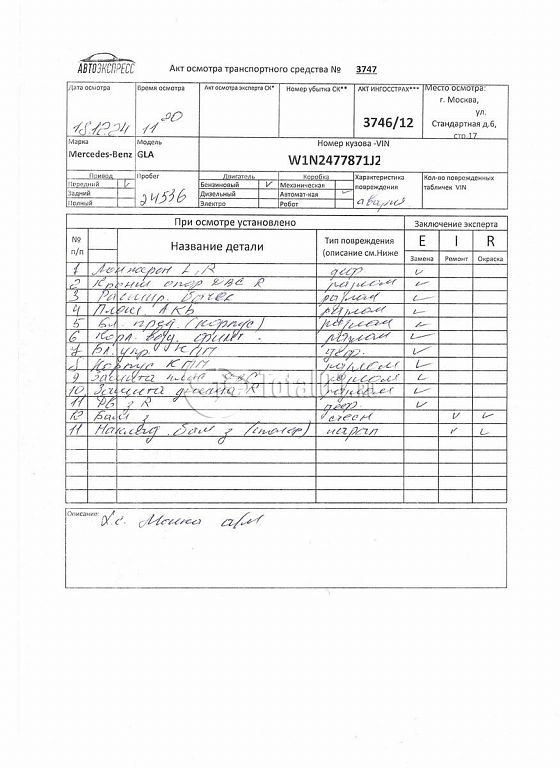 АВТОЭКСПРЕСС
Акт осмотра транспортного средства № 3747
Дата осмотра
Время осмотра
Акт осмотра эксперта СК*
Номер убытка СК**
АКТ ИНГОССТРАХ***
Место осмотра:
г. Москва,
ул.
Стандартная д.6,
стр.17
18.12.24
11 20
3746/12
Марка
Модель
Номер кузова -VIN
Mercedes-Benz GLA
W1N2477871J2
Привод
Пробег
Двигатель
Коробка
Характеристика повреждения
Кол-во поврежденных табличек VIN
Передний
24536
Бензиновый
Механическая
авария
Задний
Дизельный
Автомат-кая
Полный
Электро
Робот
При осмотре установлено
Заключение эксперта
№ п/п
Название детали
Тип повреждения (описание см.Ниже
E I R
Замена Ремонт Окраска
1 Лонжерон L, R деф.
2 Кроншт опор ДВС R разлом
3 Расшир. бачек разлом
4 Площ АКБ разлом
5 Бл. пред. (корпус) разлом
6 Корп. возд. фильт. разлом
7 Бл. упр. КПП деф.
8 Корпус КПП разлом
9 Защита разлом
10 Защита R разлом
11 з R деф.
12 Бам з
11 Наклад. Бам з царап
Описание:
а/м